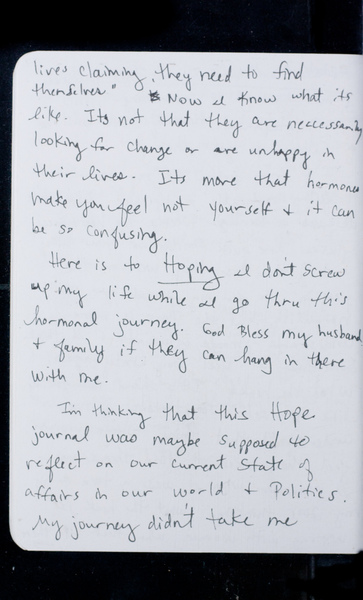 lives claiming, they need to find
themselves"  Now I know what its
like. Its not that they are neccessarily
looking for change or are unhappy in
their lives. Its more that hormones
make you feel not yourself & it can
be so confusing.
Here is to Hoping I don't screw
up my life while I go thru this
hormonal journey. God Bless my husband
& family if they can hang in there
with me.
I'm thinking that this Hope
journal was maybe supposed to
reflect on our current State of
affairs in our world & Politics.
My journey didn't take me